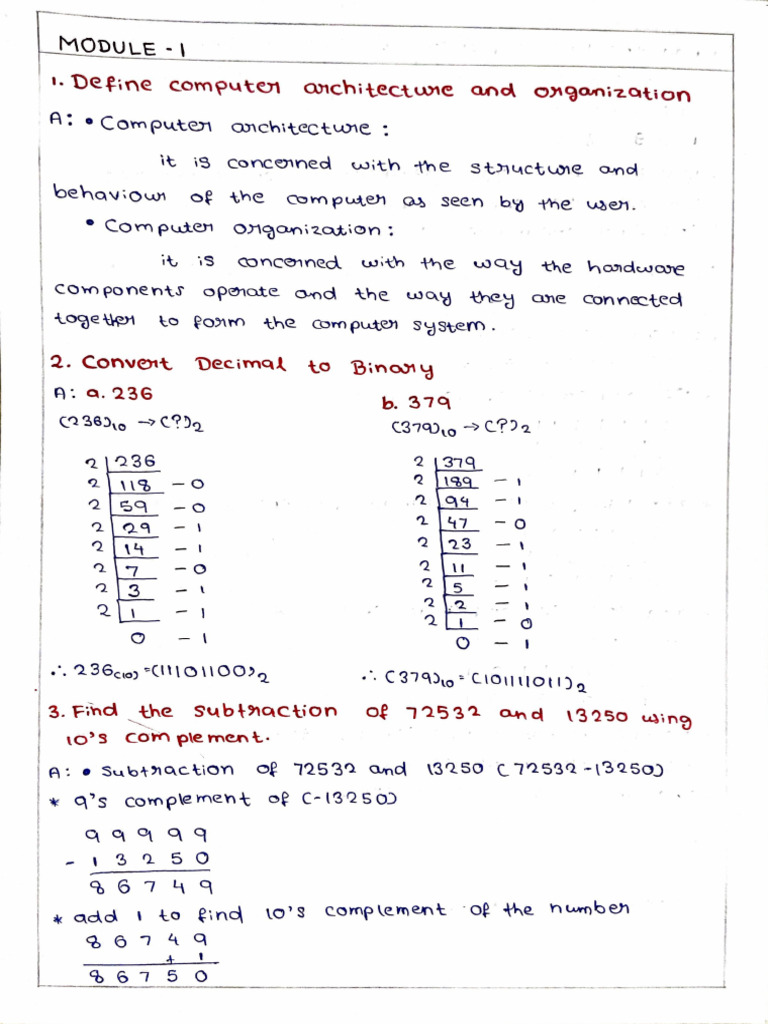 MODULE - 1
1. Define computer architecture and organization
A: • Computer architecture :
it is concerned with the structure and
behaviour of the computer as seen by the user.
• Computer organization :
it is concerned with the way the hardware
components operate and the way they are connected
together to form the computer system.
2. Convert Decimal to Binary
A: a. 236
(236)10 → (?)2
2 236
2 118 - 0
2 59 - 0
2 29 - 1
2 14 - 1
2 7 - 0
2 3 - 1
2 1 - 1
0 - 1
∴ 236(10) = (11101100)2
b. 379
(379)10 → (?)2
2 379
2 189 - 1
2 94 - 1
2 47 - 0
2 23 - 1
2 11 - 1
2 5 - 1
2 2 - 1
2 1 - 0
0 - 1
∴ (379)10 = (101111011)2
3. Find the subtraction of 72532 and 13250 using
10's complement.
A: • Subtraction of 72532 and 13250 (72532 - 13250)
* 9's complement of (-13250)
9 9 9 9 9
- 1 3 2 5 0
8 6 7 4 9
* add 1 to find 10's complement of the number
8 6 7 4 9
+ 1
8 6 7 5 0